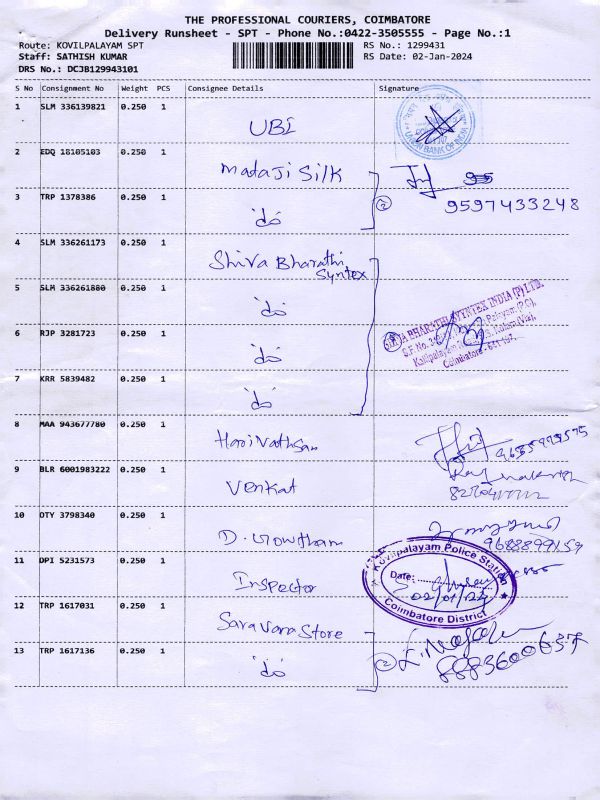 THE PROFESSIONAL COURIERS, COIMBATORE
Delivery Runsheet - SPT - Phone No.:0422-3505555 - Page No.:1
Route: KOVILPALAYAM SPT
RS No.: 1299431
Staff: SATHISH KUMAR
RS Date: 02-Jan-2024
DRS No.: DCJB129943101
S No Consignment No Weight PCS Consignee Details Signature
1 SLM 336139821 0.250 1 UBI
UNION BANK OF INDIA
2 EDQ 18105103 0.250 1 Mataji Silk
3 TRP 1378386 0.250 1 do
2
9597433248
4 SLM 336261173 0.250 1 Shiva Bharathi
Syntex
5 SLM 336261880 0.250 1 do
BHARATHI SYNTEX INDIA (P) LTD.
6 RJP 3281723 0.250 1 do
Coimbatore
7 KRR 5839482 0.250 1 do
8 MAA 943677780 0.250 1 Harivathsan
9 BLR 6001983222 0.250 1 Venkat
10 OTY 3798340 0.250 1 D. Gowtham
9688899159
11 DPI 5231573 0.250 1 Inspector
Kovilpalayam Police Station
Date:
02/01/24
Coimbatore District
12 TRP 1617031 0.250 1 Saravana Store
13 TRP 1617136 0.250 1 do
2
8883600637